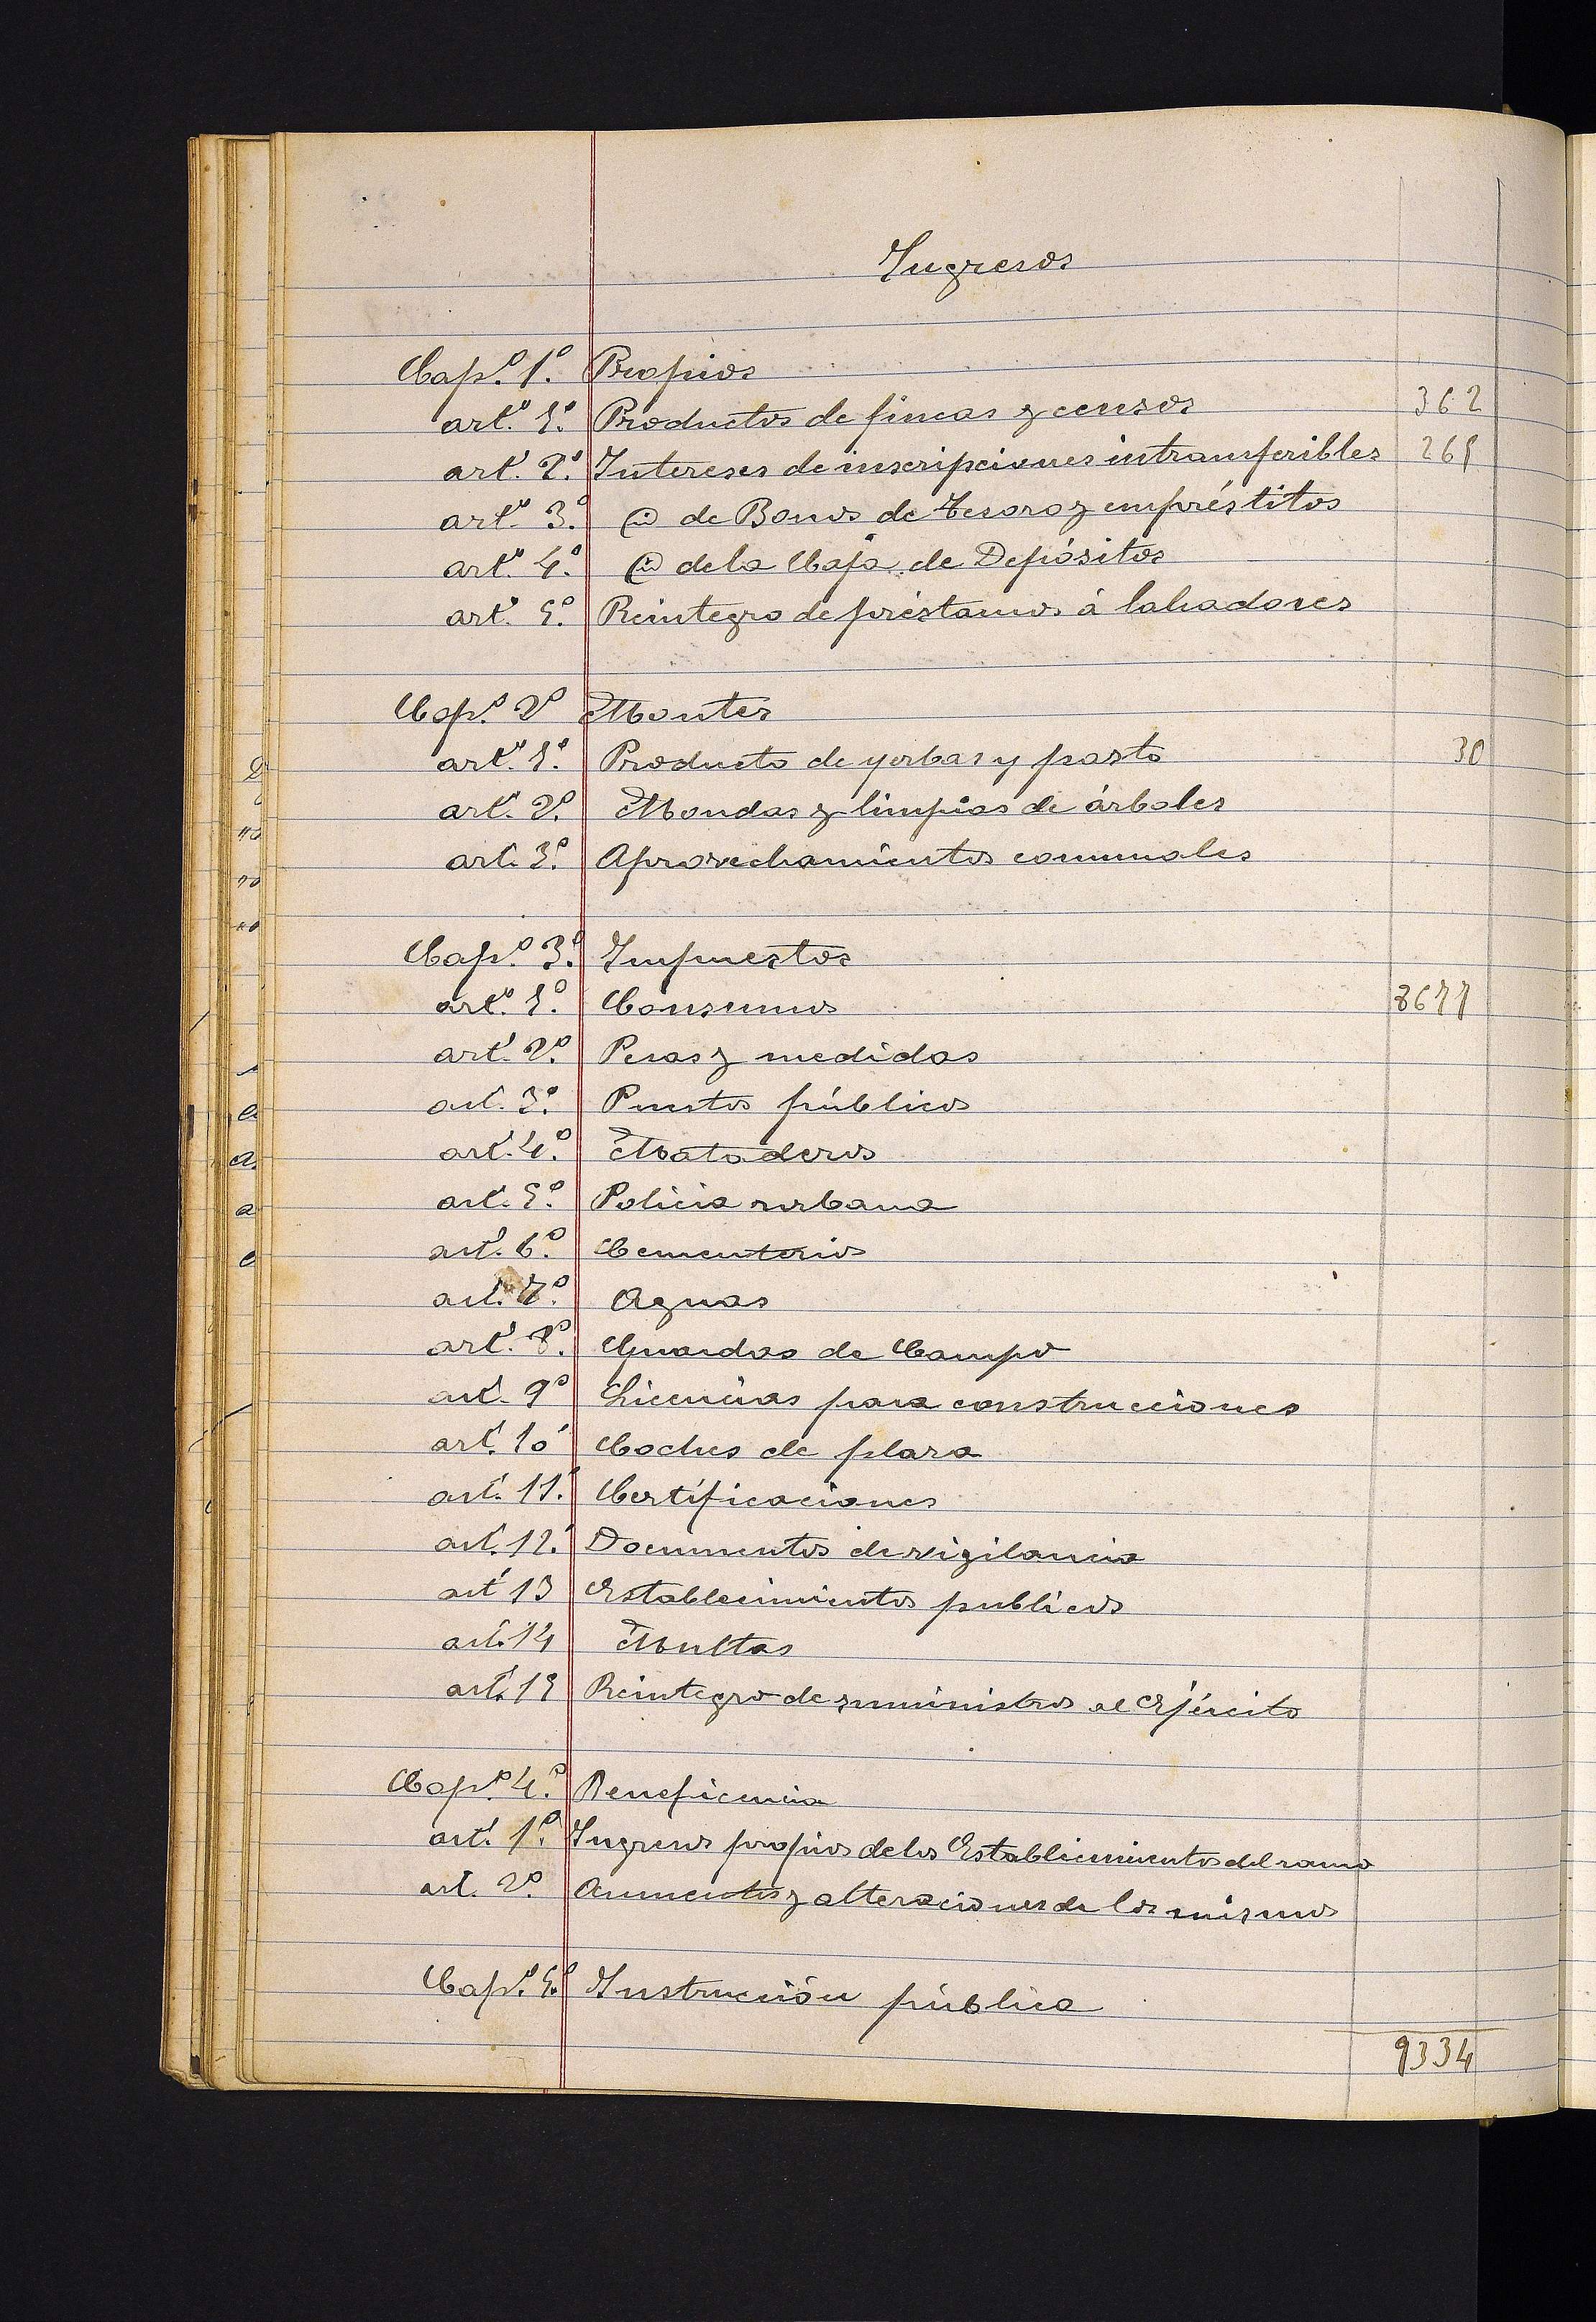 Ingresos
Cap.º 1.º Propios
art.º 1.º Productos de fincas y censos 362
art.º 2.º Intereses de inscripciones intransferibles 265
art.º 3.º id de Bonos de Tesoro y empréstitos
art.º 4.º id de la Caja de Depósitos
art.º 5.º Reintegro de préstamos á labradores
Cap.º 2º Montes
art.º 1.º Producto de yerbas y pasto 30
art.º 2.º Mondas y limpias de árboles
art. 3.º Aprovechamientos comunales
Cap.º 3.º Impuestos
art.º 1.º Consumos 8677
art.º 2.º Pesas y medidas
art. 3.º Puestos públicos
art.º 4.º Mataderos
art. 5.º Policia urbana
art.º 6.º Cementerios
art. 7.º Aguas
art.º 8.º Guardas de Campo
art. 9º Licencias para construcciones
art.º 10º Coches de plaza
art. 11.º Certificaciones
art.º 12.º Documentos de vigilancia
artº 13 Establecimientos publicos
art. 14 Multas
art.º 15 Reintegro de suministros al Ejército
Cap.º 4.º Beneficencia
art.º 1.º Ingresos propios de los Establecimientos del ramo
art. 2.º Aumentos y alteraciones de los mismos
Cap.º 5.º Instrucción pública
9334